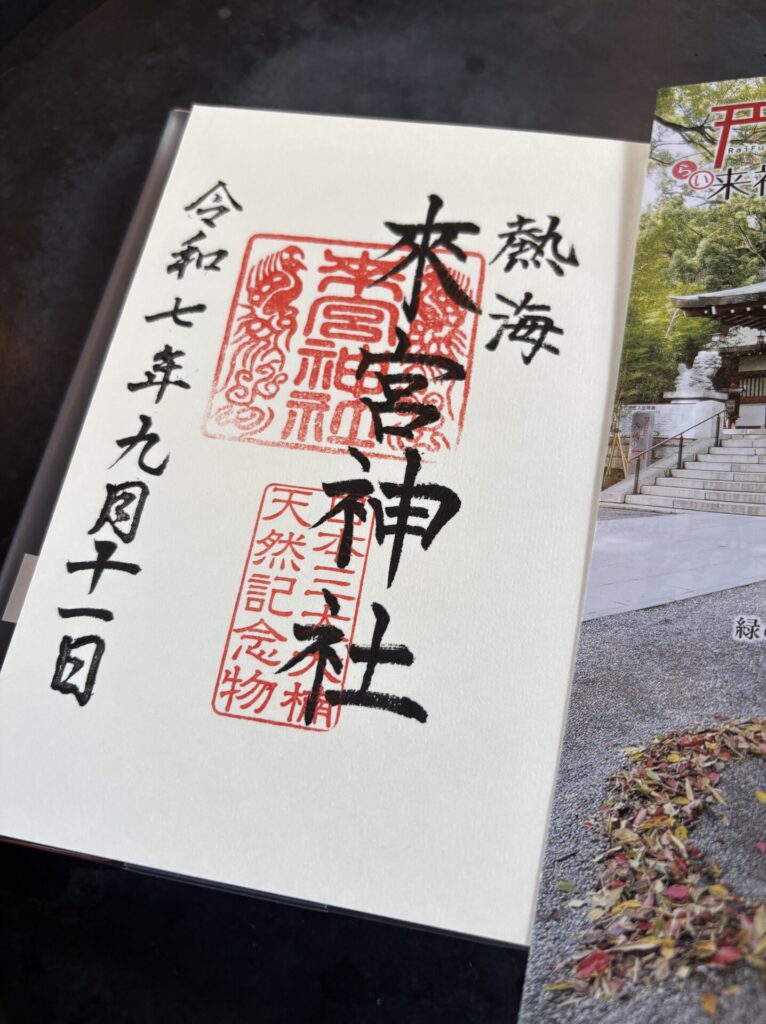 熱海
來宮神社
令和七年九月十一日
來宮神社
日本三大大楠
天然記念物
らい
来福
緑